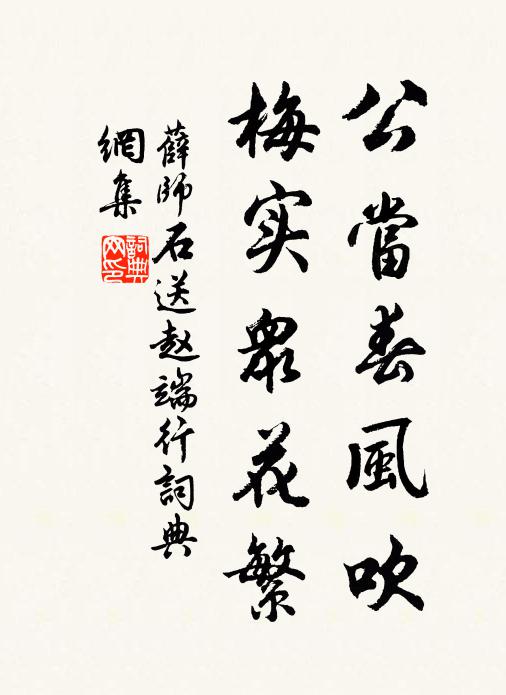 公當春風吹
梅实眾花繁
薛師石送赵端行詞典
網集
詞典
网印